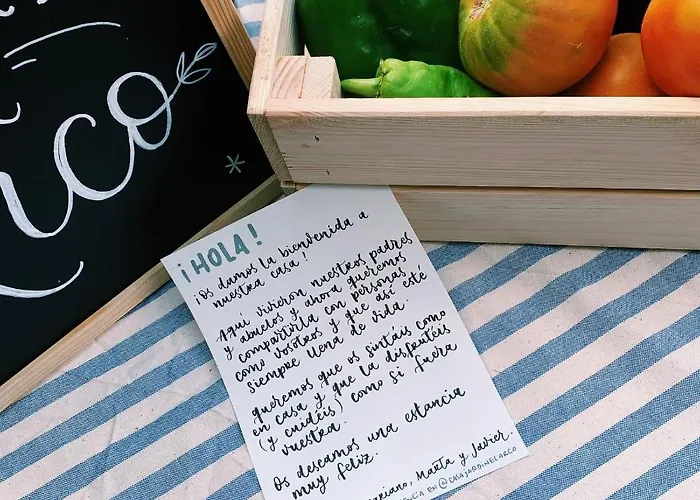 rco
¡HOLA!
¡Os damos la bienvenida a
nuestra casa!
Aquí vivieron nuestros padres
y abuelos y ahora queremos
compartirla con personas
como vosotros y que así esté
siempre llena de vida.
queremos que os sintáis como
en casa y que la disfrutéis
(y cuidéis) como si fuera
vuestra.
Os deseamos una estancia
muy feliz.
Mariano, Marta y Javier.
@CASAJARDINELARCO